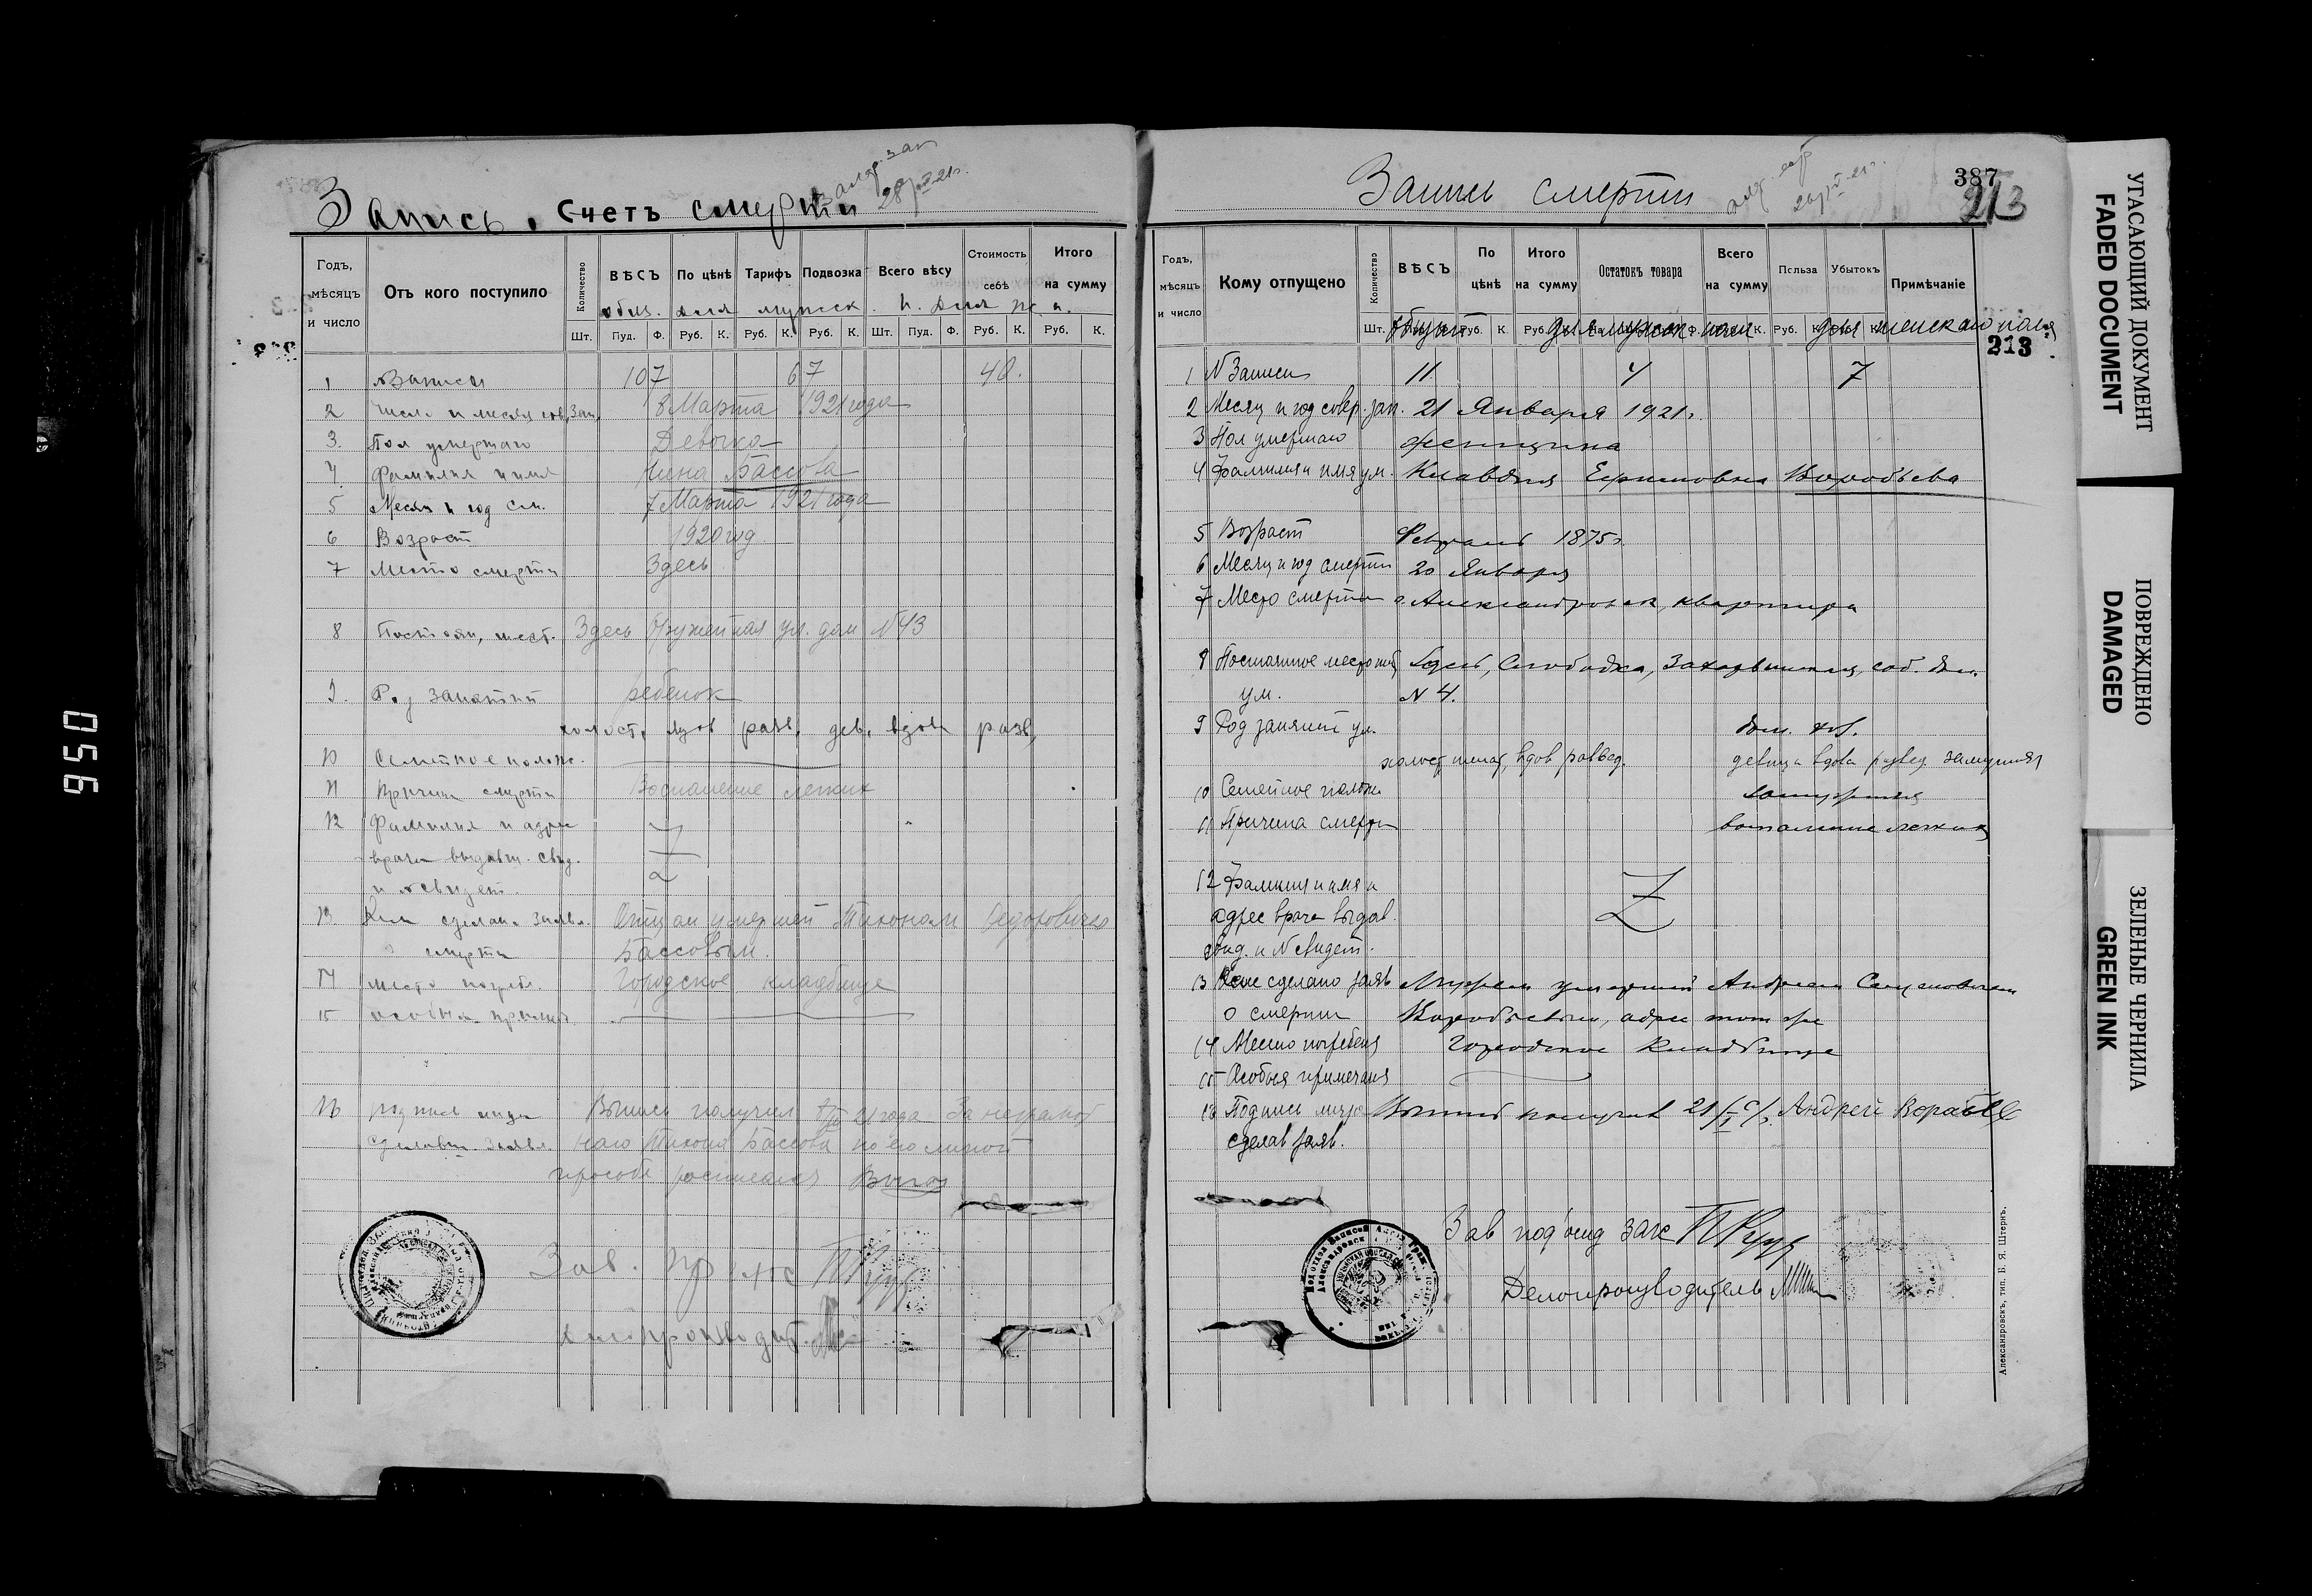 Запись. Счетъ смерти
Годъ, мѣсяцъ и число
Отъ кого поступило
Количество
ВѢСЪ
По цѣнѣ
Тарифъ
Подвозка
Всего вѣсу
Стоимость себѣ
Итого на сумму
общ. для мужск. п. для ж. п.
Шт. Пуд. Ф. Руб. К. Руб. К. Руб. К. Шт. Пуд. Ф. Руб. К. Руб. К.
1 № Записи 107 67 40.
2 Число и месяц сов. Зап. 8 Марта 1921 года
3. Пол умершаго Девочка
4 Фамилия и имя Нина Бассова
5 Месяц и год см. 7 Марта 1921 года
6 Возраст 1920 год
7 Место смерти Здесь
8 Постоян. мест. Здесь ул. дом №43
9. Род занятий ребенок
холост. вдов разв. дев. вдова разв.
10 Семейное полож.
11 Причина смерти Воспаление легких
12 Фамилия и адрес
врача выдавш. свид.
и № свидет.
13 Кем сделано заявл. Отцом умершей Тихоном Федоровичем
о смерти Бассовым.
14 Место погреб. Городское кладбище
15 особыя примеч.
16 подпись лица Выпись получил 21 года За неграмот
сделавш. заявл. наго Тихона Бассова по его личной
просьбе росписался
Зав. П
Делопроизводит.
Запись смерти
387
213
213
Годъ, мѣсяцъ и число
Кому отпущено
Количество
ВѢСЪ
По цѣнѣ
Итого на сумму
Остатокъ товара
Всего на сумму
Польза
Убытокъ
Примѣчаніе
Шт. общий для мужск. пола для женскаго пола
1 № Записи 11 4 7
2 Месяц и год совер. зап. 21 Января 1921 г.
3 Пол умершаго женщина
4 Фамилия и имя ум. Клавдия Ефимовна Воробьева
5 Возраст Февраль 1875 г.
6 Месяц и год смерти 20 Января
7 Место смерти г. Александровск, квартира
8 Постоянное место жит. Здесь, Слободка, соб. дом
ум. № 4.
9 Род занятий ум. дом. хоз.
холост, женат, вдов развед. девица вдова развед замужняя
10 Семейное полож. замужняя
11 Причина смерти воспаление легких
12 Фамилия имя и
адрес врача выдав.
свид. и № свидет.
13 Кем сделано заяв. Мужем умершей Андреем Семеновичем
о смерти Воробьевым, адрес тот же
14 Место погребения Городское Кладбище
15 Особыя примечания
16 Подпись лица Выпись получил 21/I с/г. Андрей Воробьев
сделав заяв.
Зав под'отд загс
Делопроизводитель
Александровскъ, тип. Б. Я. Штернъ.
УГАСАЮЩИЙ ДОКУМЕНТ
FADED DOCUMENT
ПОВРЕЖДЕНО
DAMAGED
ЗЕЛЕНЫЕ ЧЕРНИЛА
GREEN INK
056